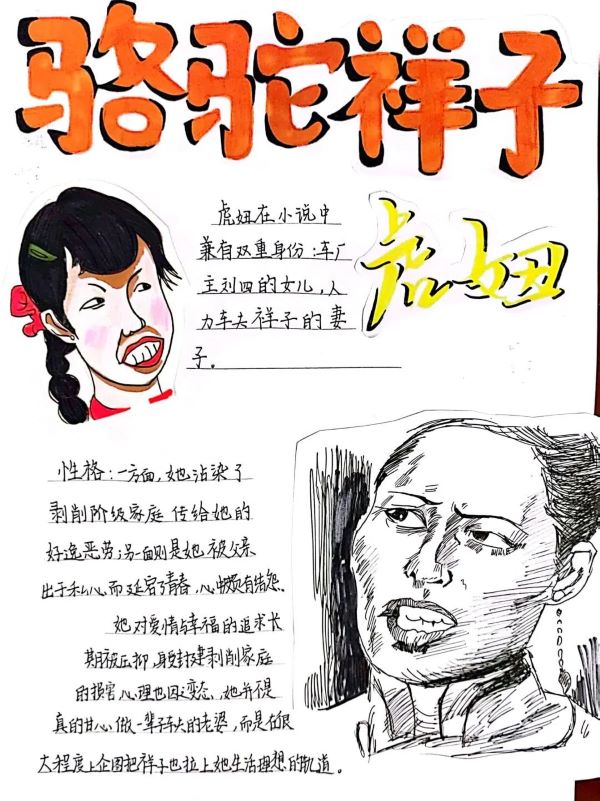 骆驼祥子
虎妞
虎妞在小说中
兼有双重身份：车厂
主刘四的女儿，人
力车夫祥子的妻
子。
性格：一方面，她沾染了
剥削阶级家庭传给她的
好逸恶劳；另一面则是她被父亲
出于私心而延宕了青春，心中颇有结怨。
她对爱情与幸福的追求长
期被压抑，身受封建剥削家庭
的损害心理也因之变态，她并不是
真的甘心做一辈子车夫的老婆，而是在很
大程度上企图把祥子也拉上她生活理想的轨道。